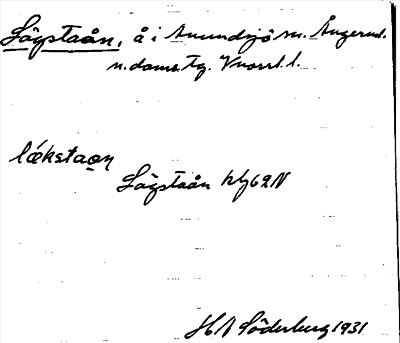 Lögstaån, å i Anundsjö sn. Ångerml.
n. doms. tg. Vnorrl. l.
lǿkstaǫn
Lögstaån hbl 62 N
H N Söderberg 1931